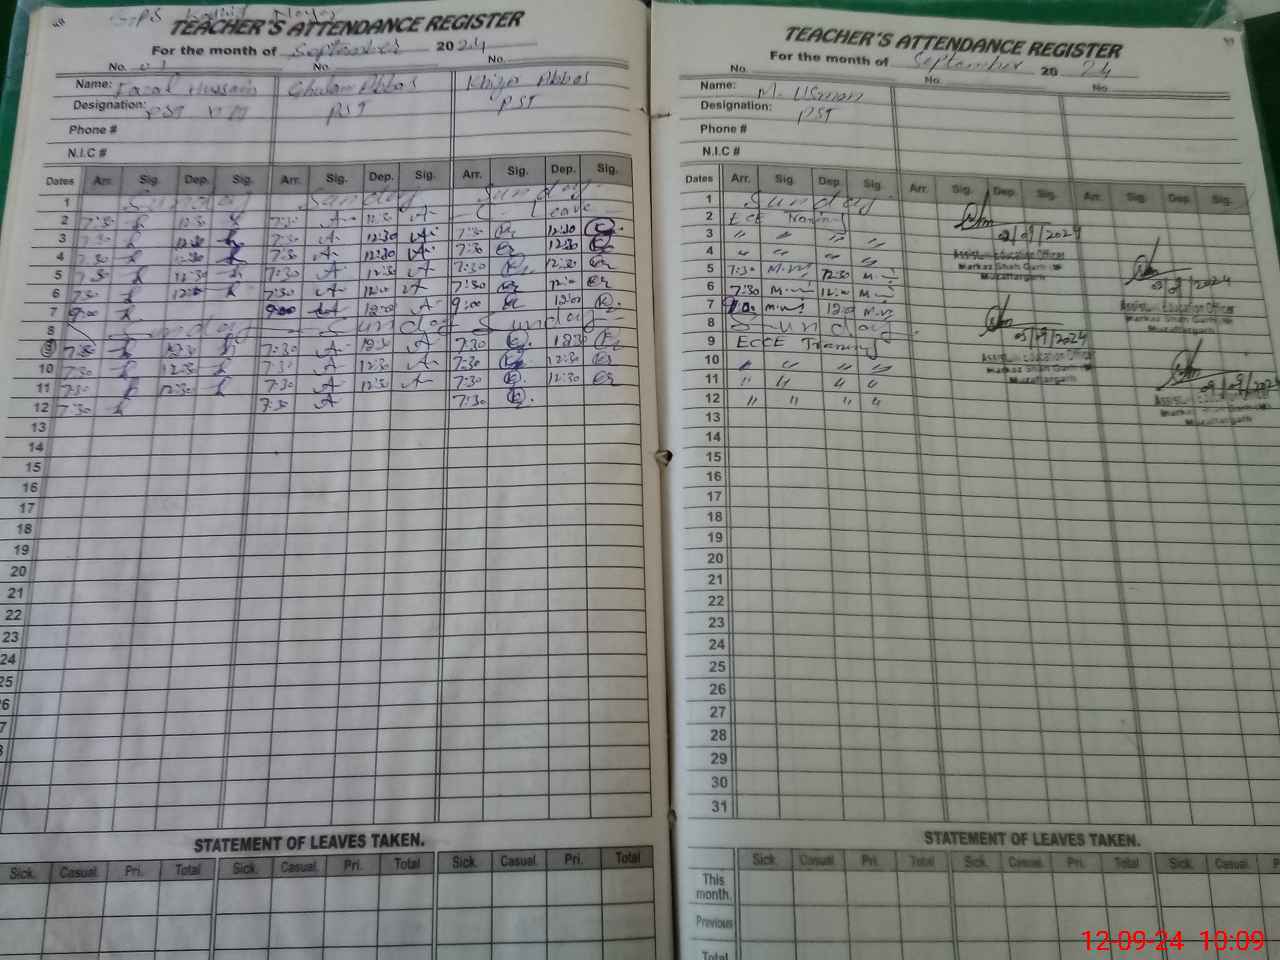 GPS
TEACHER'S ATTENDANCE REGISTER
For the month of September 2024
No. 01 No. No.
Name: Fazal Hussain Ghulam Abbas Khizar Abbas
Designation: PST PST PST
Phone #
N.I.C #
Dates Arr. Sig. Dep. Sig. Arr. Sig. Dep. Sig. Arr. Sig. Dep. Sig.
1 Sunday Sunday Sunday
2 7:30 12:30 7:30 A 12:30 A C-leave
3 7:30 12:30 7:30 A 12:30 A 7:30 12:30
4 7:30 12:30 7:30 A 12:30 A 7:30 12:30
5 7:30 12:30 7:30 A 12:30 A 7:30 12:30
6 7:30 12:00 7:30 A 12:00 A 7:30 12:00
7 9:00 9:00 A 12:00 A 9:00 12:00
8 Sunday Sunday Sunday
9 7:30 12:30 7:30 A 12:30 A 7:30 12:30
10 7:30 12:30 7:30 A 12:30 A 7:30 12:30
11 7:30 12:30 7:30 A 12:30 A 7:30 12:30
12 7:30 7:30 A 7:30
13
14
15
16
17
18
19
20
21
22
23
24
25
26
7
8
STATEMENT OF LEAVES TAKEN.
Sick. Casual. Pri. Total Sick. Casual. Pri. Total Sick. Casual. Pri. Total
TEACHER'S ATTENDANCE REGISTER
For the month of September 2024
No. No. No.
Name: M. Usman
Designation: PST
Phone #
N.I.C #
Dates Arr. Sig. Dep. Sig. Arr. Sig. Dep. Sig. Arr. Sig. Dep. Sig.
1 Sunday
2 ECE Training
3 " " " "
4 " " " "
5 7:30 M.W 12:30 M.W
6 7:30 M.W 12:00 M.W
7 M.W 12:0 M.W
8 Sunday
9 ECCE Training
10 " " " "
11 " " " "
12 " " " "
13
14
15
16
17
18
19
20
21
22
23
24
25
26
27
28
29
30
31
02/09/2024
Assistant Education Officer
Markaz Shah Garh
Muzaffargarh
03/09/2024
Assistant Education Officer
Markaz Shah Garh
Muzaffargarh
05/09/2024
Assistant Education Officer
Markaz Shah Garh
Muzaffargarh
09/09/2024
Assistant Education Officer
Markaz Shah Garh
Muzaffargarh
STATEMENT OF LEAVES TAKEN.
Sick. Casual. Pri. Total Sick. Casual. Pri. Total Sick. Casual. P
This month.
Previous
Total
12-09-24 10:09